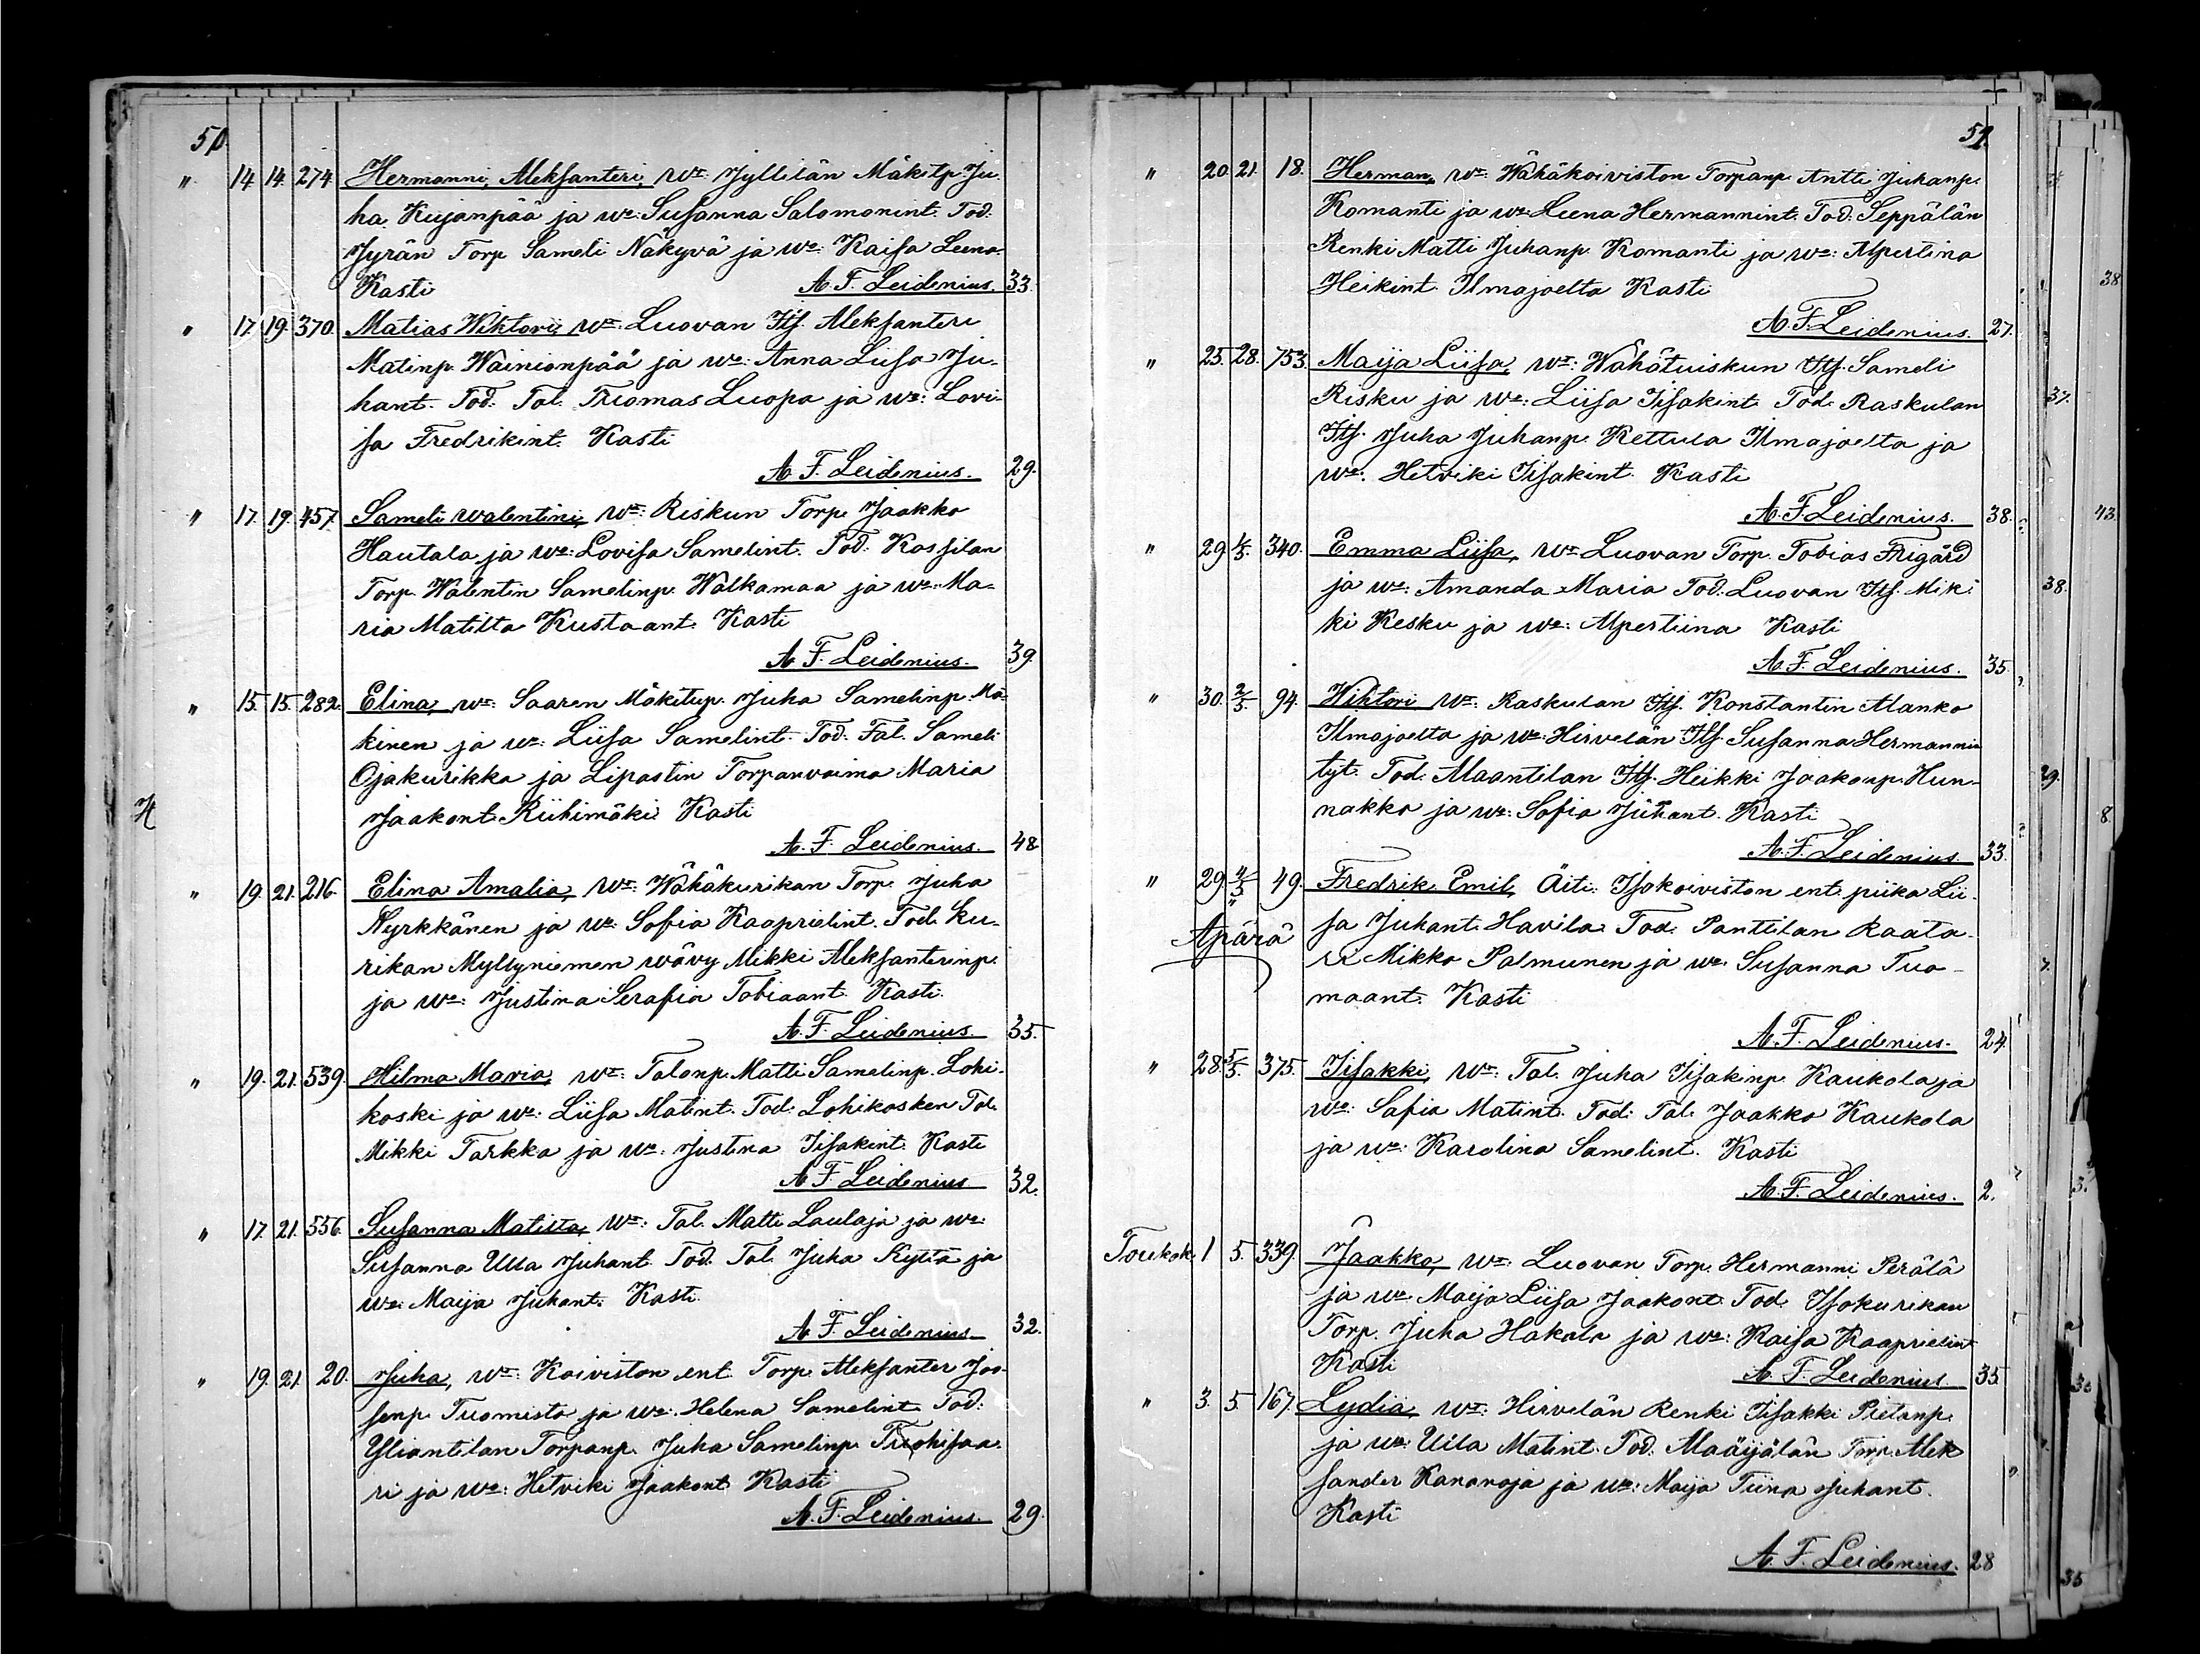 50
" 14 14. 274 Hermanni Aleksanteri, Wt. Jyllilän Mäkitp Ju
ha Kujanpää ja we: Susanna Salomonint. Tod.
Jyrän Torp Sameli Näkyvä ja we: Kaisa Leena
Kasti A. F. Leidenius. 33.
" 17 19. 370. Matias Wiktori, Wt: Luovan Its. Aleksanteri
Matinp. Wäinionpää ja we: Anna Liisa Ju-
hant. Tod: Tal. Tuomas Luopa ja we: Lovi-
sa Fredrikint. Kasti
A. F. Leidenius. 29.
" 17. 19. 457. Sameli Walentini, Wt: Riskun Torp. Jaakko
Hautala ja we: Lovisa Samelint. Tod. Kassilan
Torp. Walentin Samelinp. Walkamaa ja we: Ma-
ria Matilta Kustaant. Kasti
A. F. Leidenius. 39.
" 15. 15. 282. Elina, Wt: Saaren Mäkitup. Juha Samelinp. Mä-
kinen ja we: Liisa Samelint. Tod. Tal. Sameli
Ojakurikka ja Lipastin Torpanvaimo Maria
Jaakont. Riihimäki Kasti
H
A. F. Leidenius. 48
" 19. 21. 216. Elina Amalia, Wt: Wähäkurikan Torp. Juha
Nyrkkänen ja we: Sofia Kaaprielint. Tod. Ku-
rikan Myllyniemen wävy Mikki Aleksanterinp.
ja we: Justina Serafia Tobiaant. Kasti.
A. F. Leidenius. 35.
" 19. 21. 539. Hilma Maria, Wt: Talonp. Matti Samelinp. Lohi-
koski ja we: Liisa Matint. Tod: Lohikosken Tal.
Mikki Tarkka ja we: Justina Iisakint. Kasti
A. F. Leidenius 32.
" 17. 21. 556. Susanna Matilta, Wt: Tal. Matti Laulaja ja we:
Susanna Ulla Juhant. Tod. Tal. Juha Kyttä ja
we: Maija Juhant. Kasti.
A. F. Leidenius 32.
" 19. 21. 20. Juha, Wt: Koiviston ent. Torp. Aleksanter Joo-
senp. Tuomisto ja we: Helena Samelint. Tod.
Yliantilan Torpanp. Juha Samelinp. Tuohisaa-
ri ja we: Hetviki Jaakont. Kasti
A. F. Leidenius. 29.
51.
" 20. 21. 18. Herman, Wt: Wähäkoiviston Torpanp. Antti Juhanp.
Komanti ja we: Leena Hermannint. Tod: Seppälän
Renki Matti Juhanp. Komanti ja we: Alpertina
Heikint. Ilmajoelta Kasti
A. F. Leidenius. 27.
" 25. 28. 753. Maija Liisa, Wt: Wähätuiskun Its. Sameli
Risku ja we: Liisa Iisakint. Tod. Raskulan
Its. Juha Juhanp. Kettula Ilmajoelta ja
we: Hetviki Iisakint. Kasti
A. F. Leidenius. 38.
" 29. 4/5. 340. Emma Liisa, Wt: Luovan Torp. Tobias Frigård
ja we: Amanda Maria Tod. Luovan Its. Mik-
ki Kesku ja we: Alpertiina Kasti
A. F. Leidenius. 35.
" 30. 2/5 94. Wihtori Wt: Raskulan Its. Konstantin Alanko
Ilmajoelta ja we: Hirvelän Its. Susanna Hermannin
tyt. Tod. Maantilan Its. Heikki Jaakonp. Hun-
nakko ja we: Sofia Juhant. Kasti
A. F. Leidenius. 33.
" 29. 4/5 49. Fredrik Emil, Äiti: Isokoiviston ent. piika Lii-
Apärä sa Juhant. Havila Tod. Panttilan Raata-
ri Mikko Palmunen ja we: Susanna Tuo-
maant. Kasti
A. F. Leidenius. 24.
" 28. 5/5. 375. Iisakki, Wt: Tal. Juha Iisakinp. Kaukola ja
we: Safia Matint. Tod: Tal. Jaakko Kaukola
ja we: Karolina Samelint. Kasti
A. F. Leidenius. 2.
Toukok. 1 5. 339. Jaakko, Wt: Luovan Torp. Hermanni Perälä
ja we: Maija Liisa Jaakont. Tod. Isokurikan
Torp. Juha Hakala ja we: Kaisa Kaaprielint
Kasti A. F. Leidenius 35.
" 3. 5. 167. Lydia, Wt: Hirvelän Renki Iisakki Pietanp.
ja we: Ulla Matint. Tod. Maaijälän Torp. Alek
sander Kananoja ja we: Maija Tiina Juhant.
Kasti
A. F. Leidenius. 28